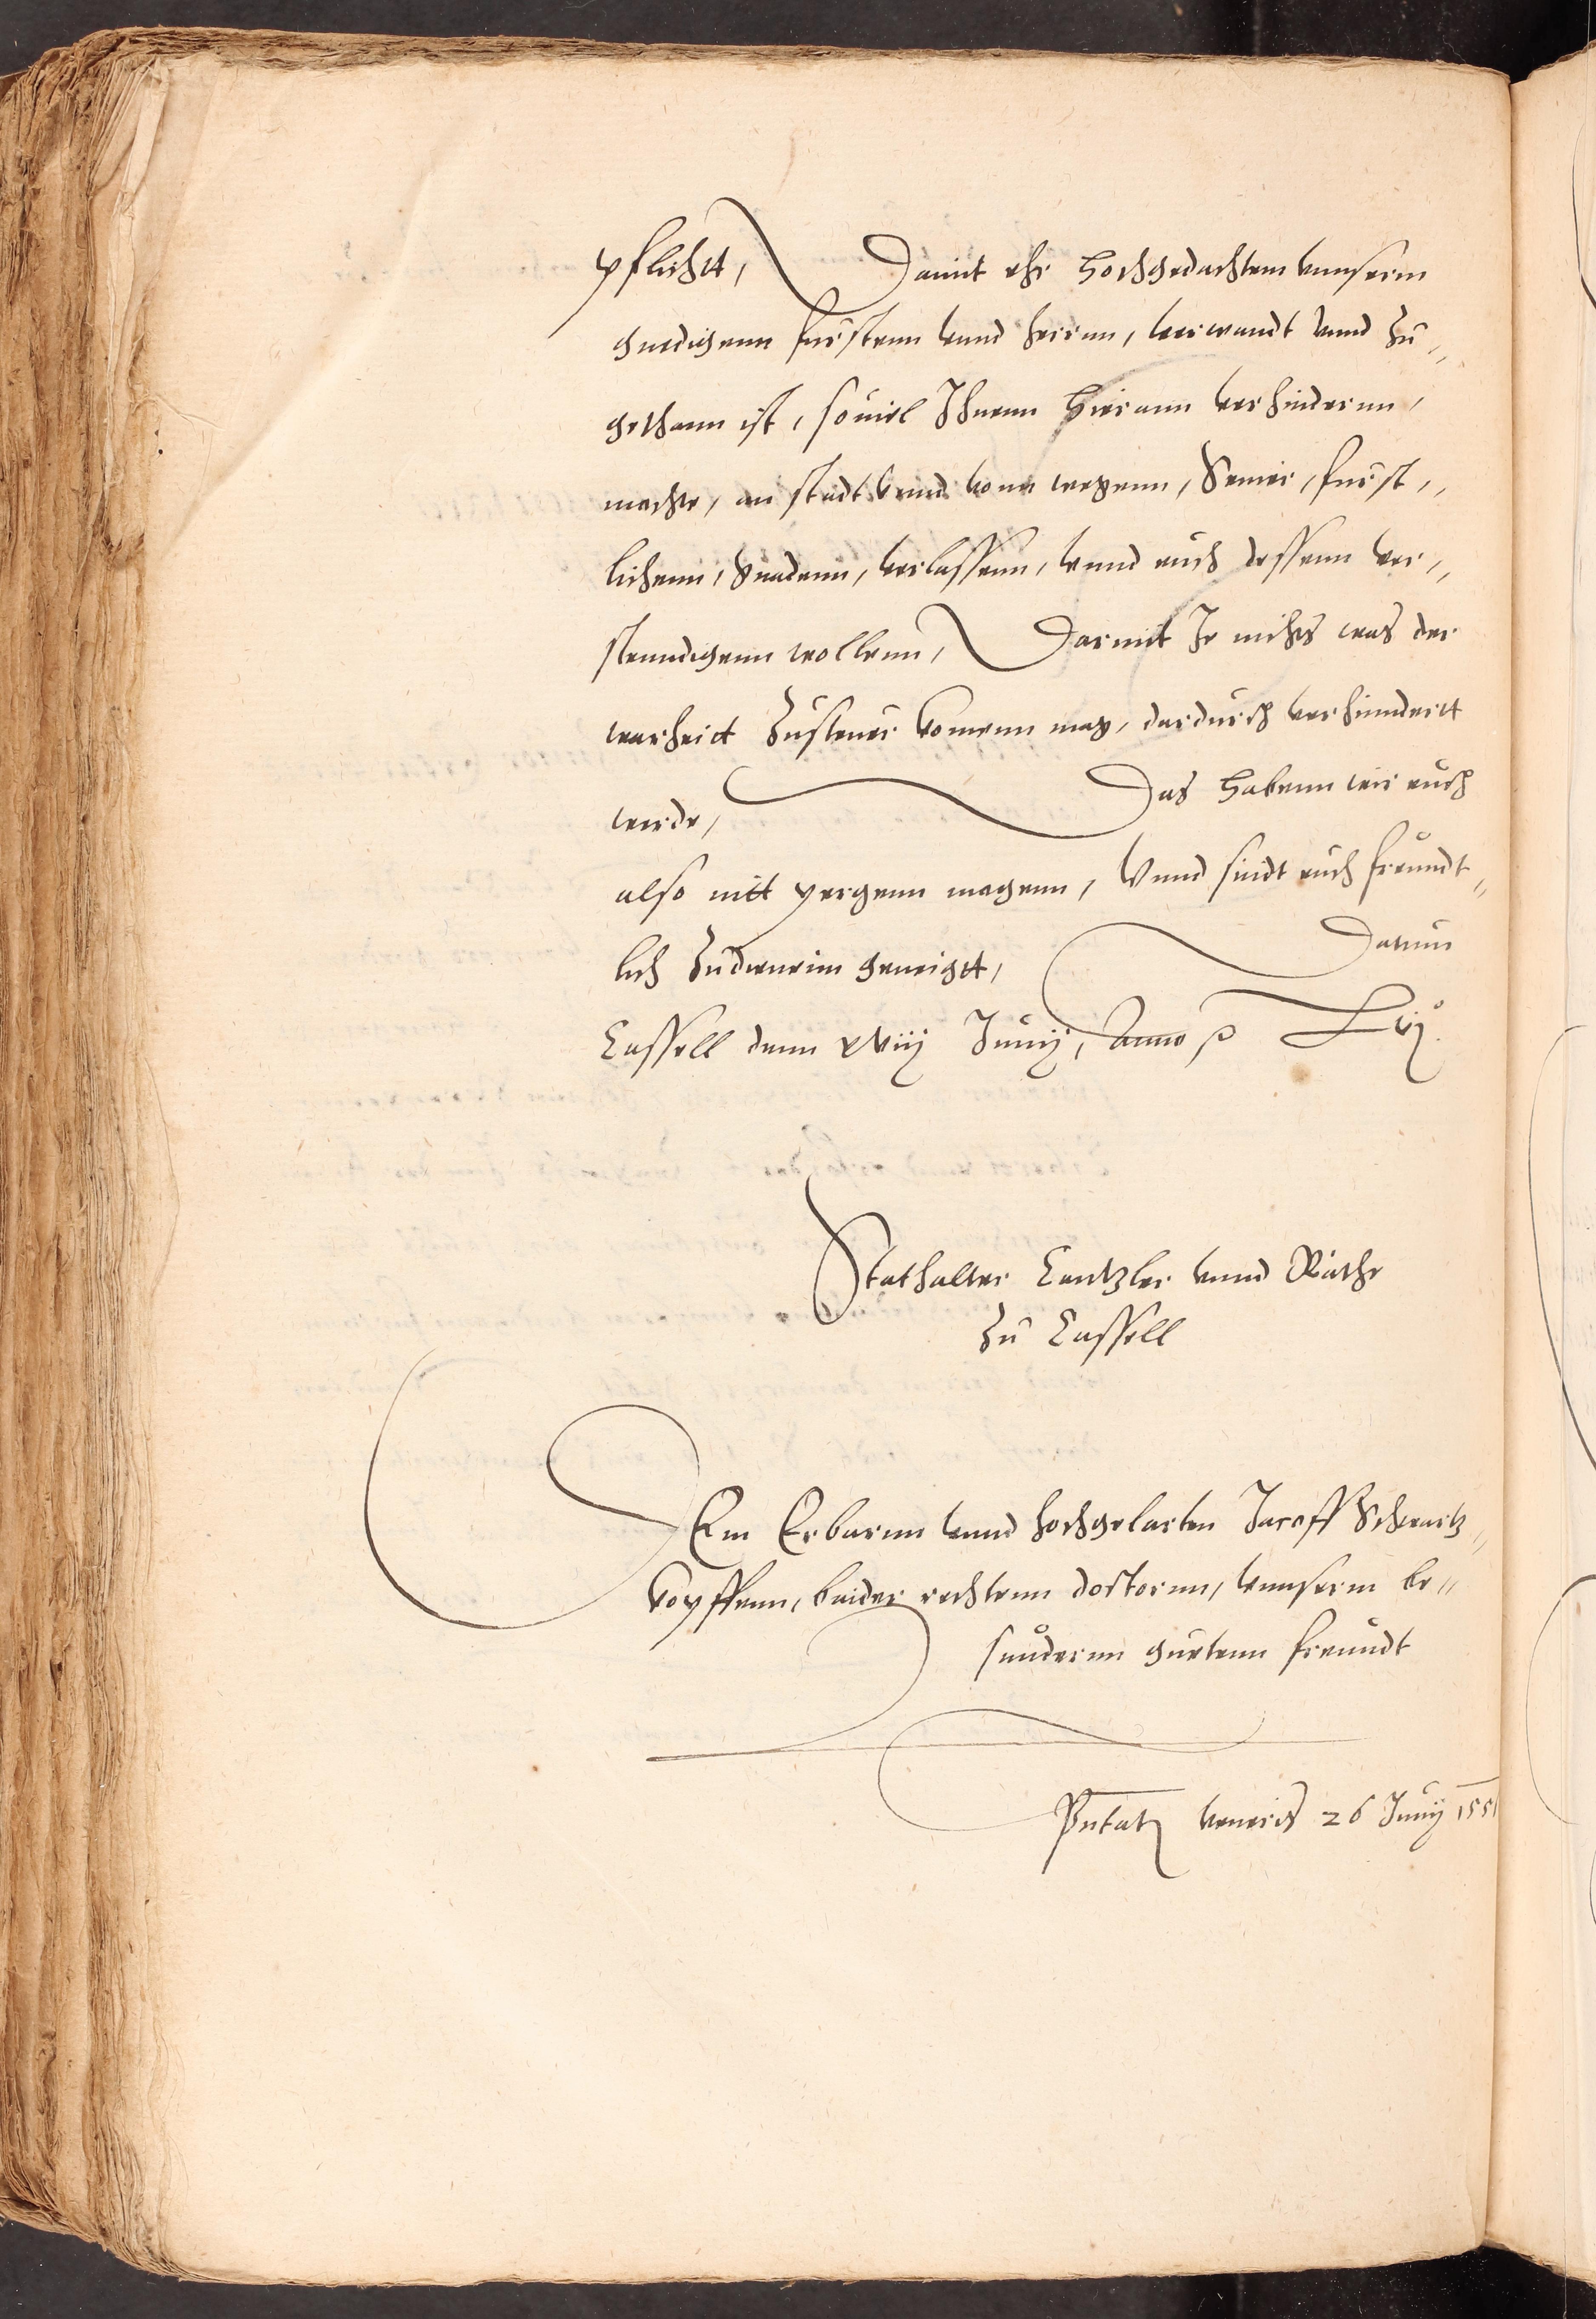 pflichtt, Damit ehr hochgedachtem vnnserm
gnedigenn furstenn vnnd herrnn, verwandt vnnd zu„
gethann ist, souiel Ihnenn hierann verhindernn,
mochte, an stadt vnnd vonn wegenn, Seiner, furst„
lichenn, Gnadenn, verlassenn, vnnd euch dessenn ver„
stenndigenn wollenn, Darmit Je nichts was der
warheitt zusteuer komenn mag, dardurch verhinndertt
werde, Das habenn wir euch
also nitt pergenn mogenn, Vnnd sindt euch freundt„
lich zudienenn geneigtt, Datum
Cassell denn xviij Junij, Anno p Lvij
Stathalter Cantzler vnnd Räthe
zu Cassell
Dem Erbarnn vnnd hochgelarten Jacoff Schwartz„
kopffenn, beider rechtenn doctornn, vnnserm be„
sundernn guetenn freundt
Pntat veneris 26 Junij 155